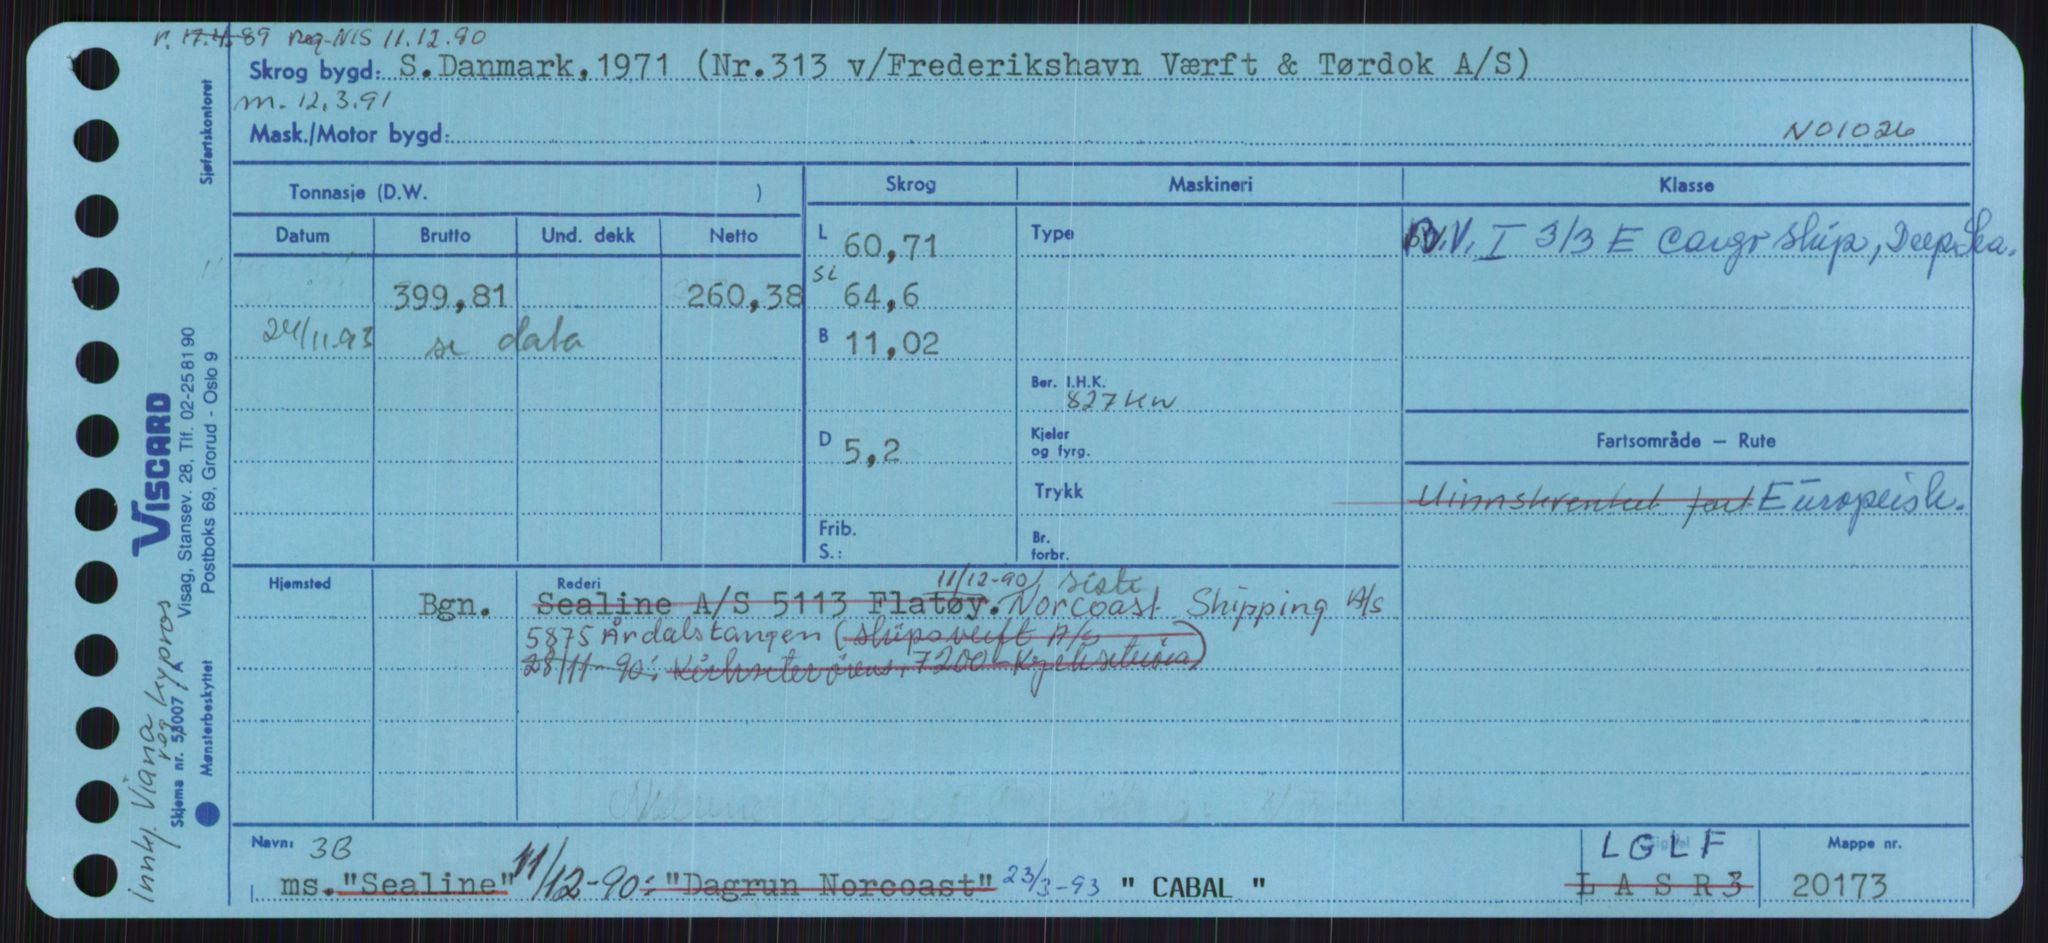 r. 17.4.89 Reg-NIS 11.12.90
Skrog bygd: S.Danmark, 1971 (Nr.313 v/Frederikshavn Værft & Tørdok A/S)
m. 12.3.91
Mask./Motor bygd: N01026
Tonnasje (D.W. )
Skrog
Maskineri
Klasse
Datum Brutto Und. dekk Netto
399,81 260,38
24/11.93 se data
L 60,71
SL 64,6
B 11,02
D 5,2
Frib.
S.:
Type
Ber. I.H.K.
827 kw
Kjeler
og fyrg.
Trykk
Br.
forbr.
B.V. I 3/3 E Cargo ship, Deep Sea.
Fartsområde – Rute
Uinnskrenket fart Europeisk.
Hjemsted
Rederi
11/12-90 siste
Bgn. Sealine A/S 5113 Flatøy. Norcoast Shipping A/S
5875 Årdalstangen (Skipsverft A/S
28/11-90: 7200
Navn: 3B
ms. "Sealine" 11/12-90: "Dagrun Norcoast" 23/3-93 " CABAL "
LGLF
L A S R 3
Mappe nr.
20173
Sjøfartskontoret
VISCARD
Visag, Stansev. 28, Tlf. 02-25 81 90
Postboks 69, Grorud - Oslo 9
Skjema nr. 53007/A
Mønsterbeskyttet
innkj. Viana
reg Kypros